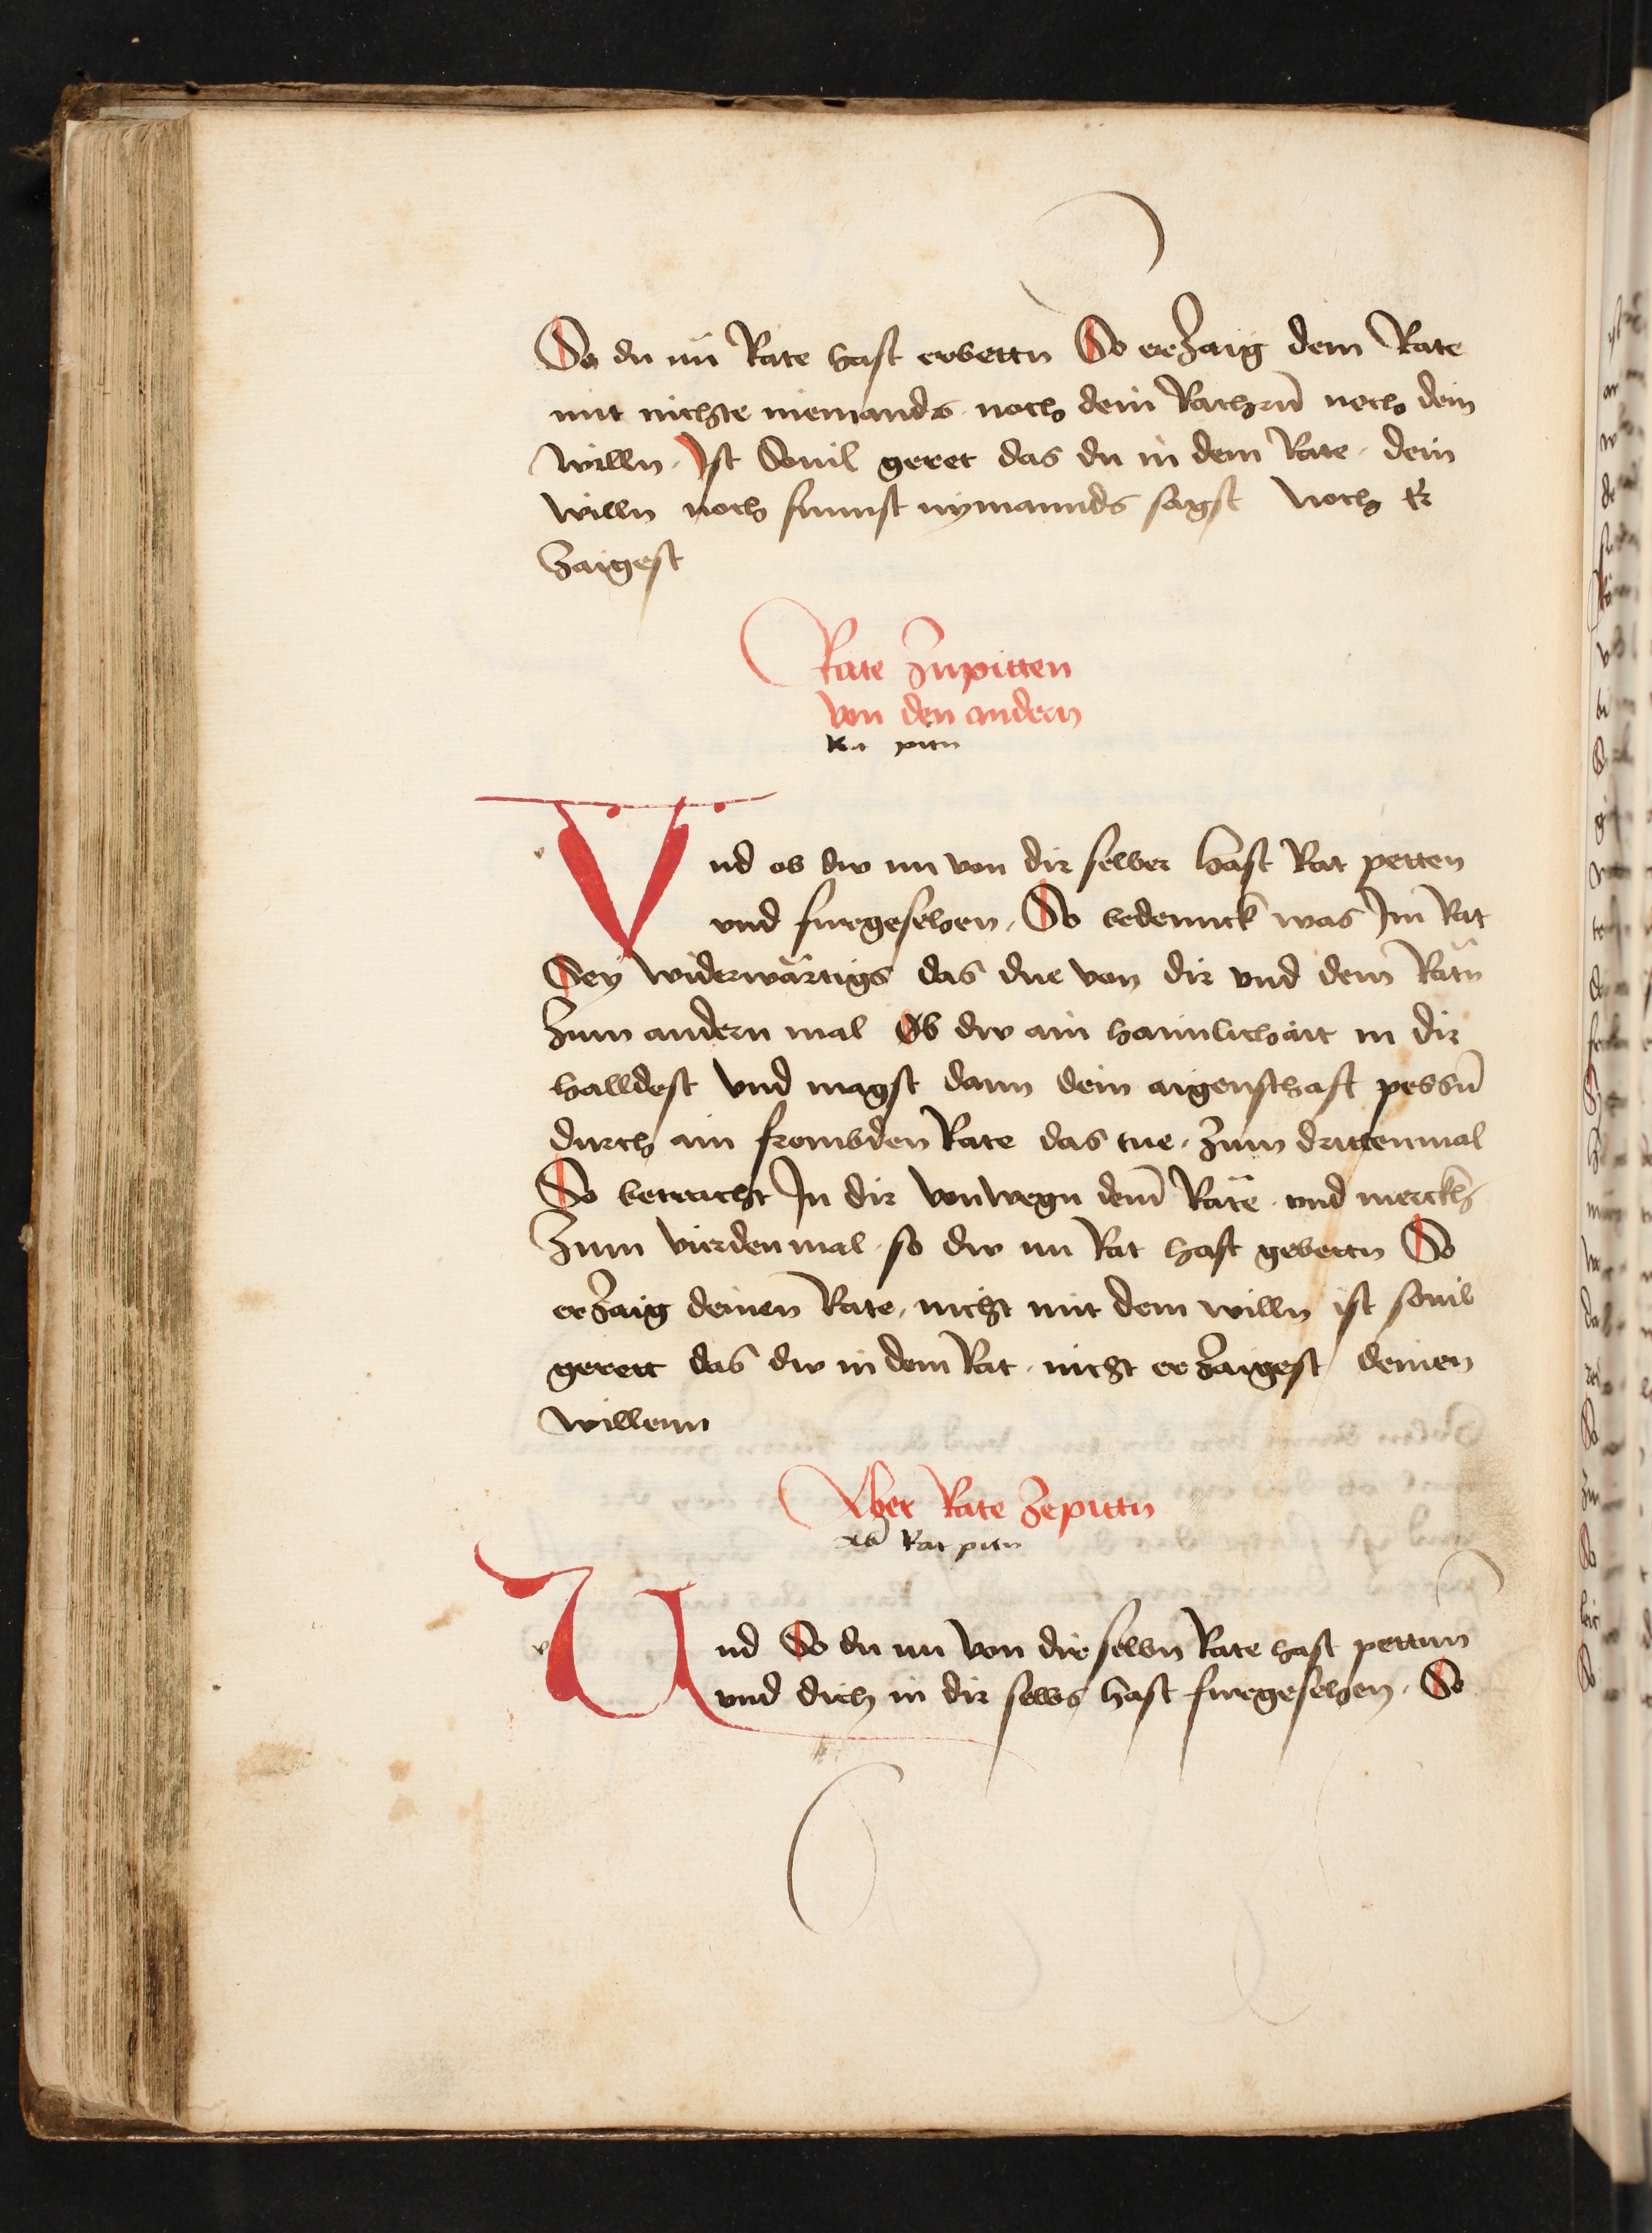 So du nu Rate hast erbettn So erzaig dem Rate
mit nichte niemands noch dein noch dein
willn. Ist Souil geret das du in dem Rate dein
willn noch sunnst nymannds sagst noch er
zaigest
Rate Zupitten
von den andern
Rat pitn
Und ob dw nu von dir selber hast Rat petten
vnd furgesehen. So bedennck was Im Rat
Sey widerwärtigs das due von dir vnd dem Ratn
Zum andern mal Ob dw ain haimlichait in dir
halldest vnd magst dann dein aigenschaft pessn
durch ain frombden Rate das tue. Zum drittenmal
So betracht In dir vonwegn dem Räte vnd merckh
Zum vierdenmal so dw nu Rat hast gebettn So
erzaig deinen Rate nicht mit dem willn ist souil
gerett das dw in dem Rat nicht erzaigest deinen
willenn
Aber Rate Zepittn
ab Rat pitn
Und So du nu von dir selbn Rate hast pettnn
vnd dich in dir selbs hast furgesehen. So